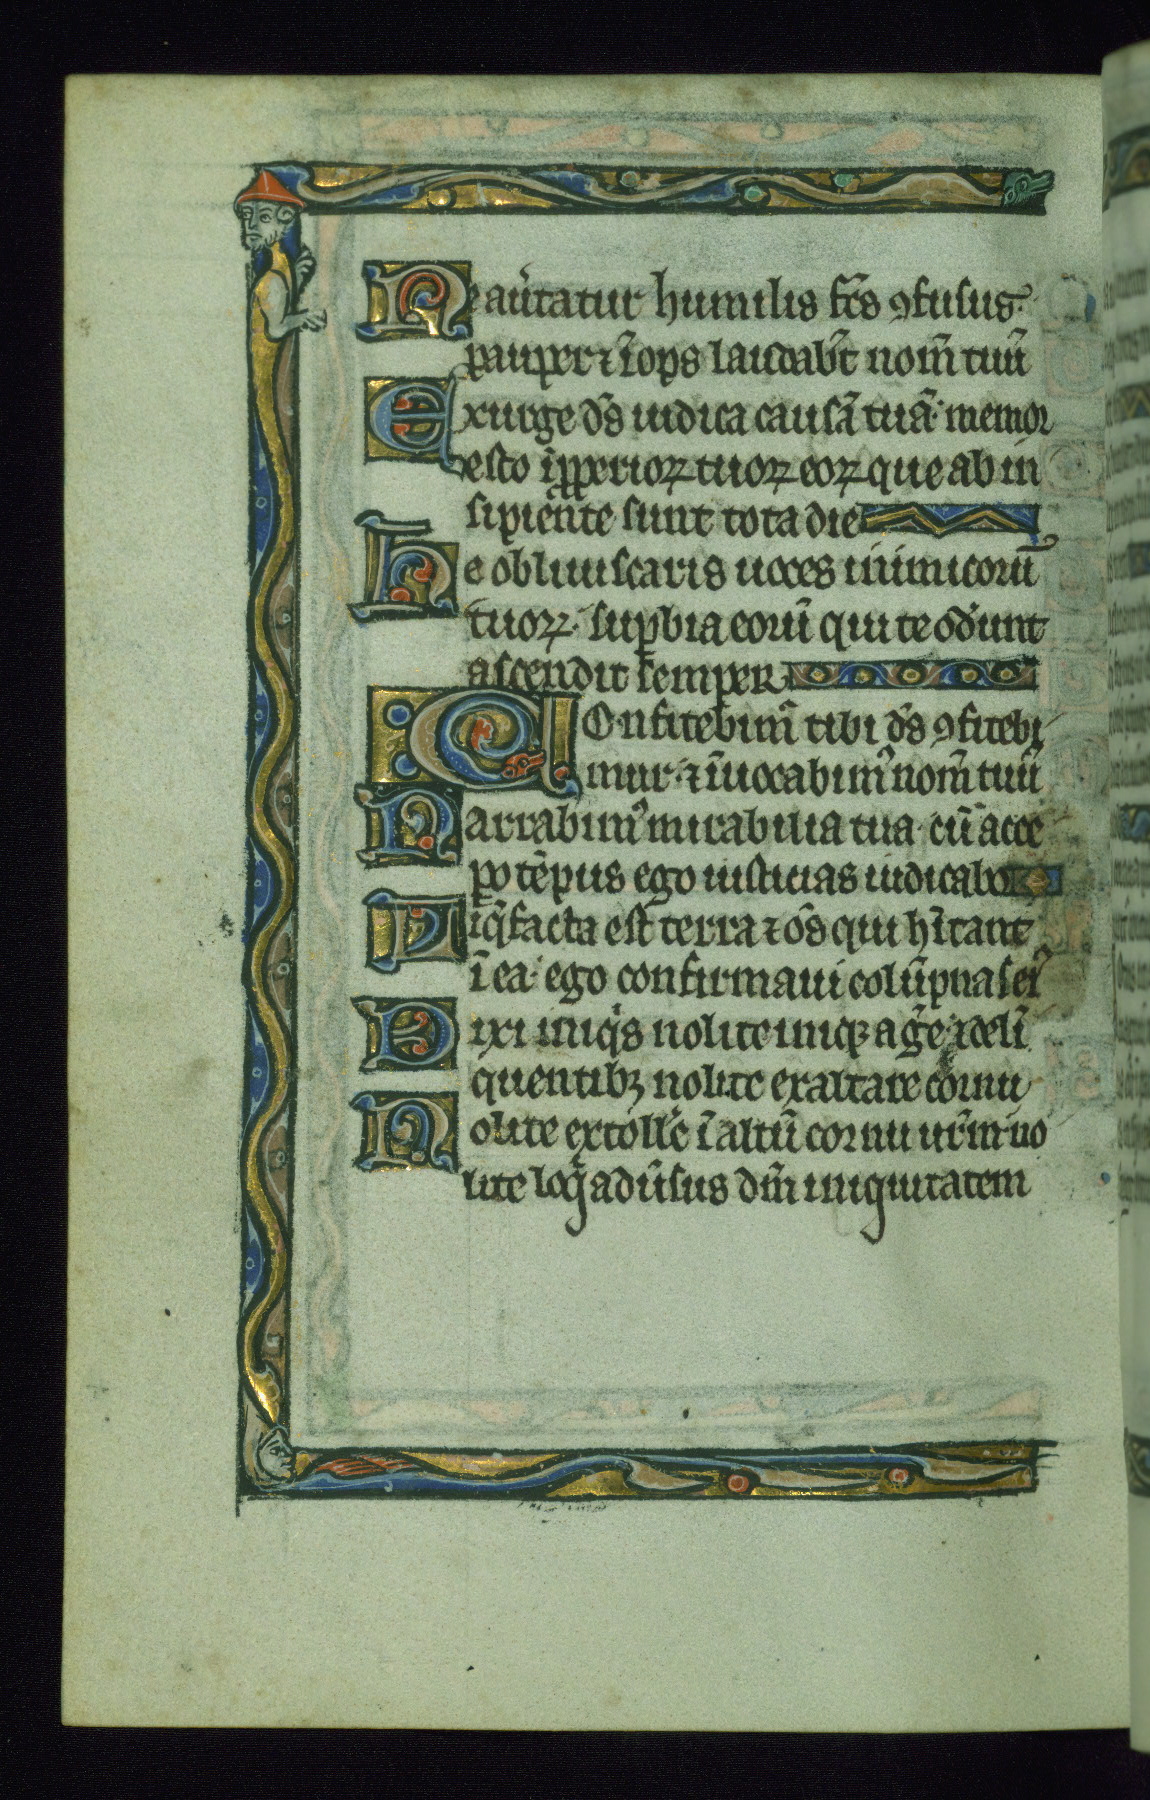 Ne aũtatur humilis fcs ꝯfusus·
pauper ⁊ īops laudabt̄ nom̄ tuū
Exurge dn̄s iudica causā tuā· memor
esto īpperioꝝ tuoꝝ eoꝝ que ab in
sipiente sunt tota die
Ne obliuiscaris uoces inimicorū
tuoꝝ· suꝑbia eorū qui te oderunt
ascendit semper
COnfitebim᷒ tibi ds̄ ꝯfitebi
mur· ⁊ īuocabim᷒ nom̄ tuū
Narrabim᷒ mirabilia tua· cū acce
ꝑo tēpus ego iusticias iudicabo
Liq̄facta est terra ⁊ om̄s qui hītant
ī ea· ego confirmaui colūpnas ei᷒
Dixi iniq̇s nolite iniqꝫ aḡe ⁊ delī
quentibꝫ nolite exaltare cornu
Nolite extolle ī altū cornu ur̄m· no
lite loq̄ aduersus dm̄ iniquitatem